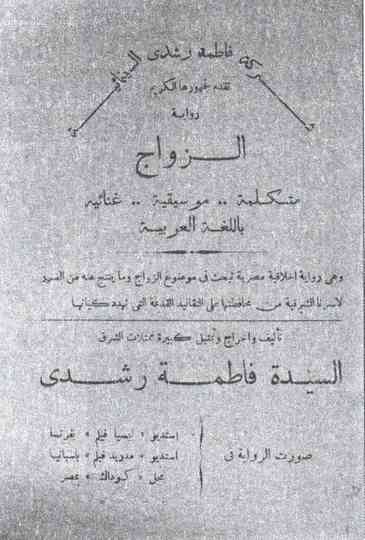 شركة فاطمة رشدى السينمائية
تقدم لجمهورها الكريم
رواية
الزواج
متكلمة .. موسيقية .. غنائيه
باللغة العربية
وهى رواية اخلاقية مصرية تبحث فى موضوع الزواج وما ينتج عنه من
لاسرنا الشرقية من محافظتها على التقاليد القديمة التى تهدد كيانها
تأليف واخراج وتمثيل كبيرة ممثلات الشرق
السيدة فاطمة رشدى
صورت الرواية فى
استديو « ابسيا فيلم » بفرنسا
استديو « مدريد فيلم » باسبانيا
محل « كوداك » بمصر